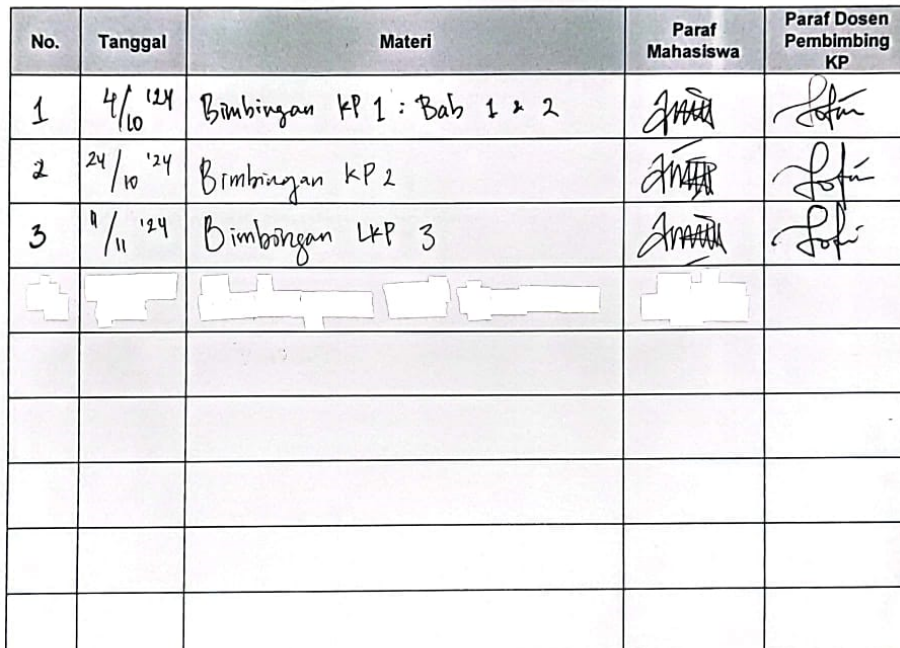 No. Tanggal Materi Paraf Mahasiswa Paraf Dosen Pembimbing KP
1 4/10 '24 Bimbingan KP 1 : Bab 1 & 2
2 24/10 '24 Bimbingan KP 2
3 11/11 '24 Bimbingan LKP 3